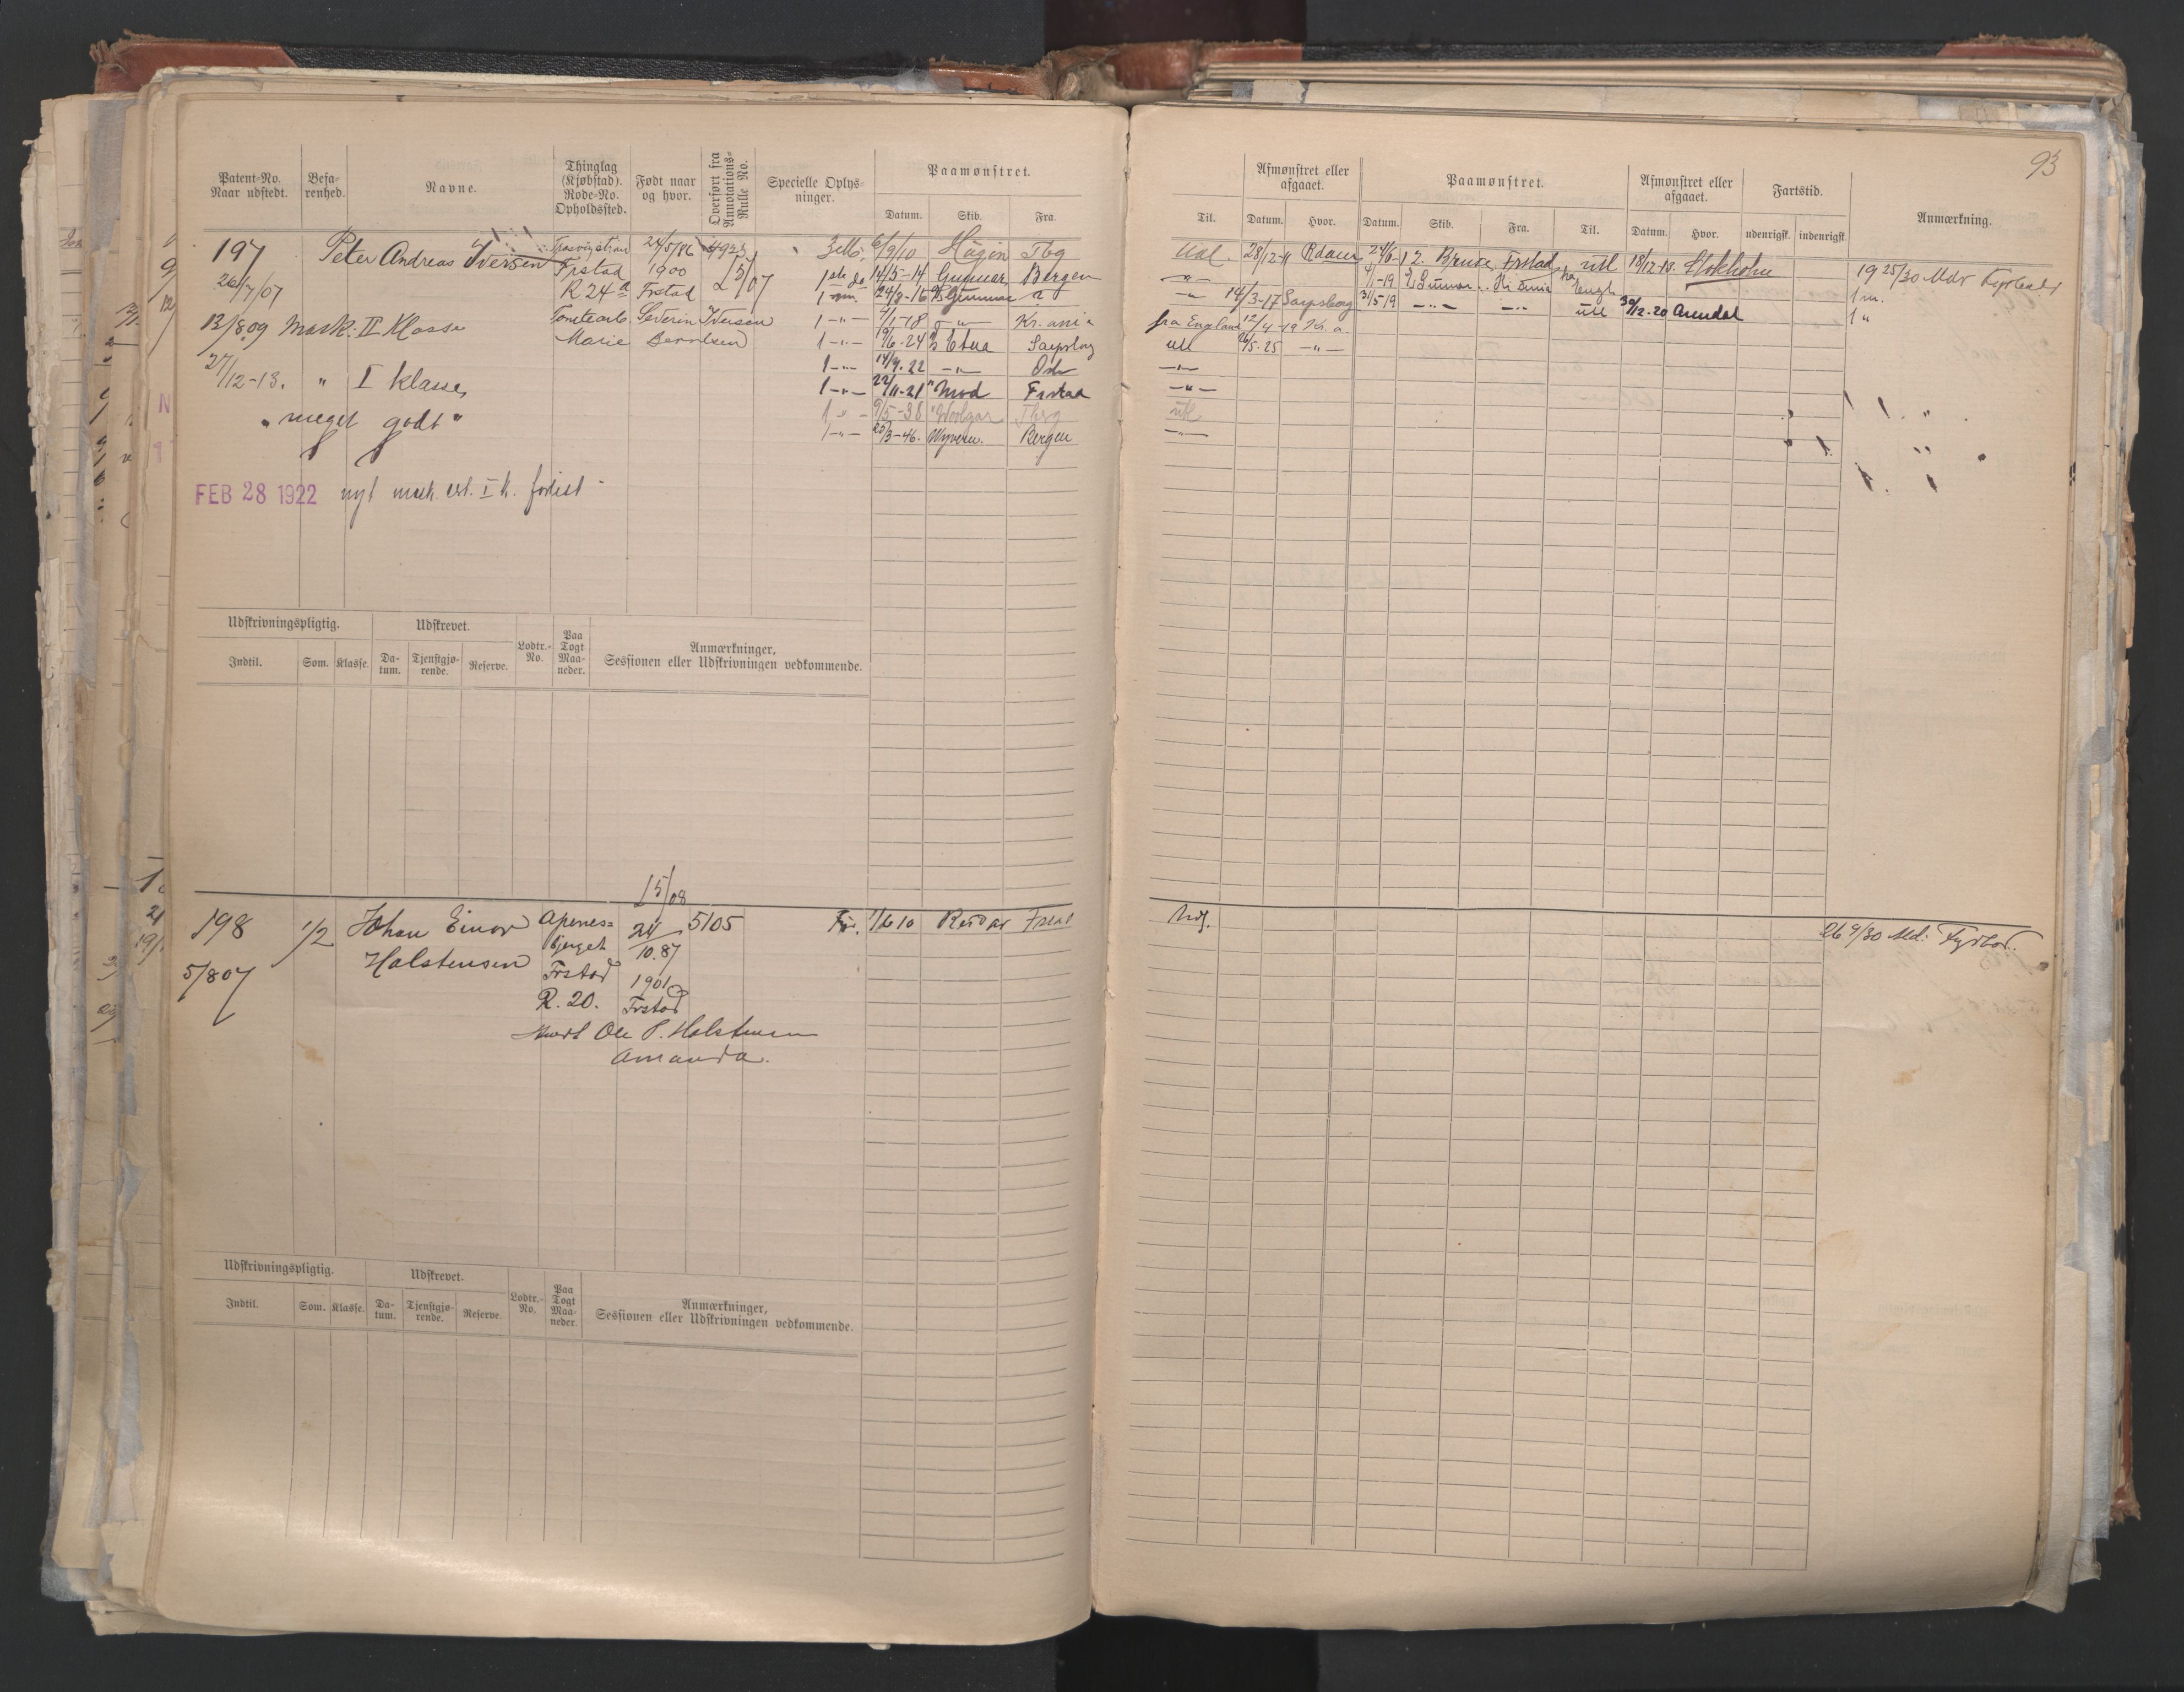 93
Patent-No. Naar udstedt. Befarenhed. Navne. Thinglag (Kjøbstad). Rode-No. Opholdssted. Født naar og hvor. Overført fra Annotations-Rulle No. Specielle Oplysninger. Paamønstret.
Datum. Skib. Fra.
Til. Afmønstret eller afgaaet. Paamønstret. Afmønstret eller afgaaet. Fartstid. Anmærkning.
Datum. Hvor. Datum. Skib. Fra. Til. Datum. Hvor. udenrigsk. indenrigsk.
197 Peter Andreas Iversen 24/5/86 4923 6/9/10 Høgin Tbg
Frstad 1900 L 5/07 14/5-14 Gunnar Bergen
26/7/07 R 24a Frstad 24/3-16 Gunnar
13/8 09 Mask. II Klasse Severin Iversen 1 -"- 4/1-18 -"- Kr.ania
Marie Berntsen 1 -"- 19/6-24 Etna Sarpsborg
27/12-13. " I Klasse 1 -"- 14/9-22 -"- Oslo
1 -"- 22/11-21 " Mod Frstad
"meget godt" 1 -"- 9/5-38 Tbrg
1 -"- 20/3-46. Wyvern. Bergen
FEB 28 1922 nyt mask. I kl.
Udl. 28/12-11 Rdam 24/6-12. Bruse Frstad utl 18/12-13. Stokholm 19 25/30 Mdr Fyrbøder
-"- 4/1-19 Gunnar Kr.ania Engl 1 m.
-"- 14/3-17 Sarpsborg 31/5 19 -"- -"- utl 30/12-20 Arendal 1 "
fra England 12/4-19 Kr.a.
utl 26/5-25 -"-
-"-
-"-
utl
-"-
Udskrivningspligtig. Udskrevet. Lodtr.-No. Paa Togt Maaneder. Anmærkninger, Sessionen eller Udskrivningen vedkommende.
Indtil. Som. Klasse. Datum. Tjenstgjørende. Reserve.
L 5/08
198 1/2 Johan Einar Apenes= 24 5105 Fyr. 1/6 10 Reidar Frstad
Halstensen bjerget 10.87
5/8 07 Frstad 1901
R. 20. Frstad
Ole P. Halstensen
Amanda.
Udl. 26 9/30 Md: Fyrbød.
Udskrivningspligtig. Udskrevet. Lodtr.-No. Paa Togt Maaneder. Anmærkninger, Sessionen eller Udskrivningen vedkommende.
Indtil. Som. Klasse. Datum. Tjenstgjørende. Reserve.